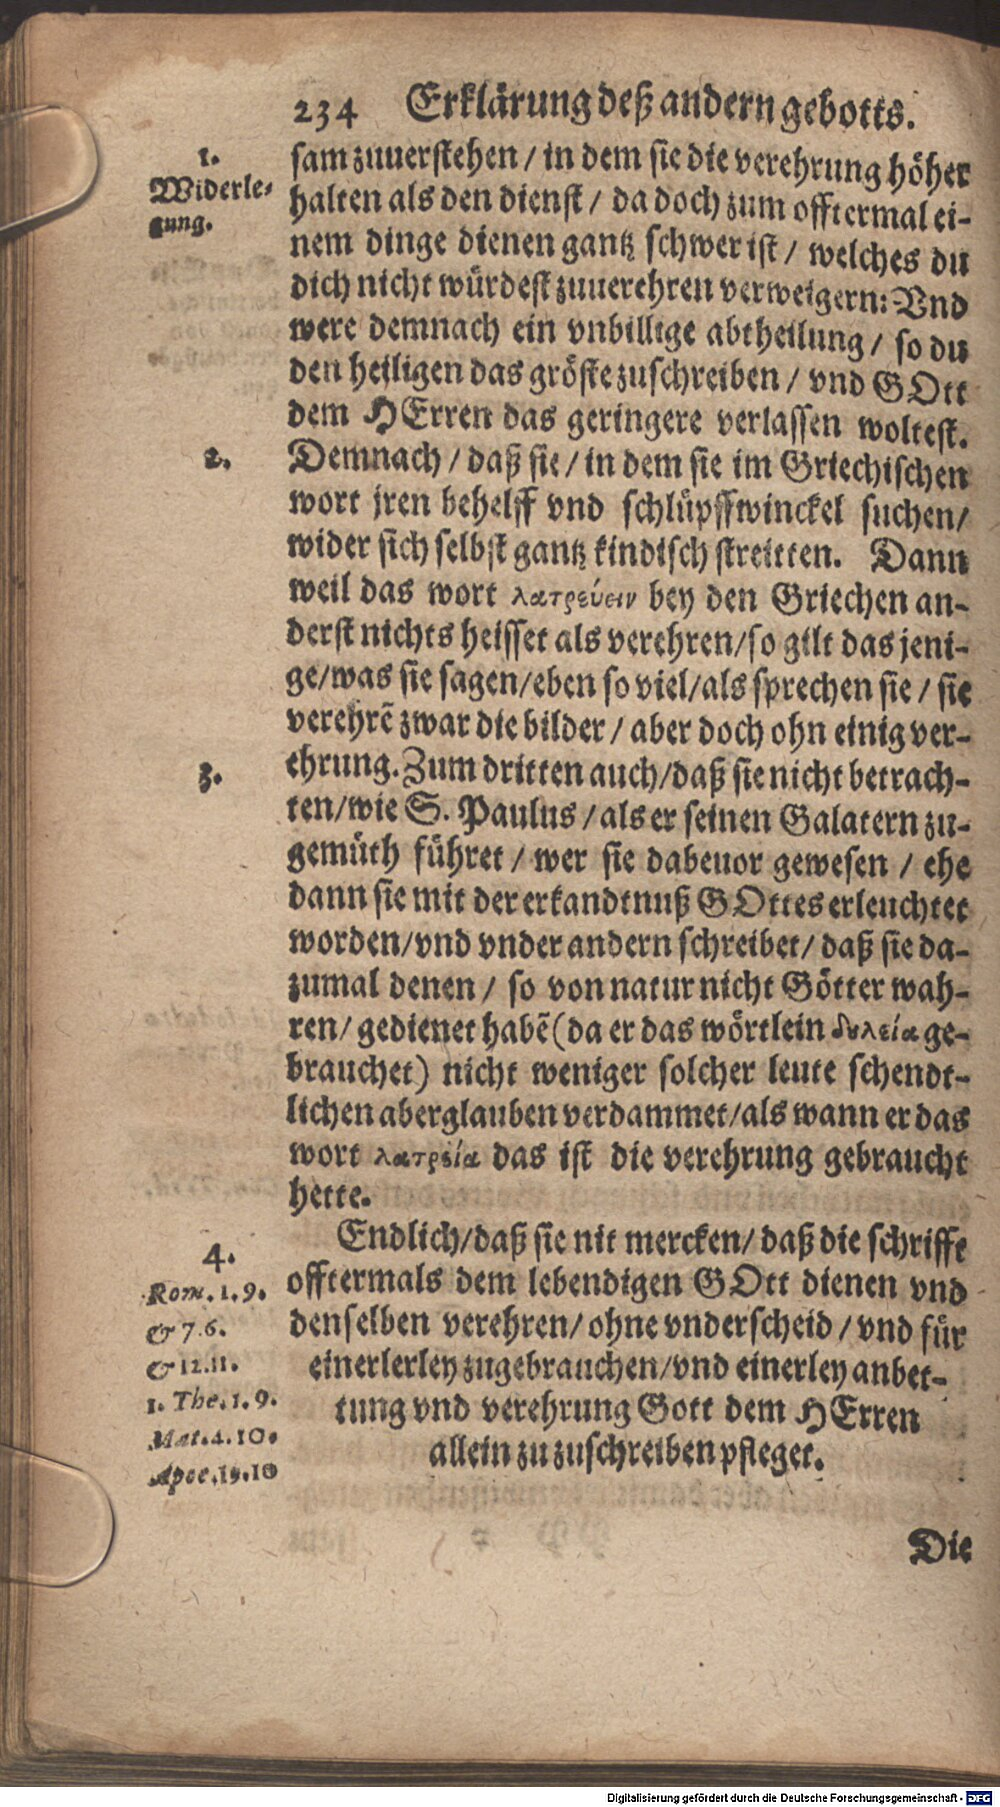 234 Erklärung deß andern gebotts.
1.
Widerle-
gung.
sam zuuerstehen / in dem sie die verehrung höher
halten als den dienst / da doch zum offtermal ei-
nem dinge dienen gantz schwer ist / welches du
dich nicht würdest zuuerehren verweigern: Vnd
were demnach ein vnbillige abtheilung / so du
den heiligen das gröste zuschreiben / vnd GOtt
dem HErren das geringere verlassen woltest.
2.
Demnach / daß sie / in dem sie im Griechischen
wort jren behelff vnd schlüpffwinckel suchen /
wider sich selbst gantz kindisch streitten. Dann
weil das wort λατρεύειν bey den Griechen an-
derst nichts heisset als verehren / so gilt das jeni-
ge / was sie sagen / eben so viel / als sprechen sie / sie
verehrē zwar die bilder / aber doch ohn einig ver-
3.
ehrung. Zum dritten auch / daß sie nicht betrach-
ten / wie S. Paulus / als er seinen Galatern zu-
gemüth führet / wer sie dabeuor gewesen / ehe
dann sie mit der erkandtnuß GOttes erleuchtet
worden / vnd vnder andern schreibet / daß sie da-
zumal denen / so von natur nicht Götter wah-
ren / gedienet habē (da er das wörtlein δουλεία ge-
brauchet) nicht weniger solcher leute schendt-
lichen aberglauben verdammet / als wann er das
wort λατρεία das ist die verehrung gebraucht
hette.
4.
Rom. 1. 9.
& 7. 6.
& 12. 11.
1. The. 1. 9.
Mat. 4. 10.
Apoc. 19. 10
Endlich / daß sie nit mercken / daß die schrifft
offtermals dem lebendigen GOtt dienen vnd
denselben verehren / ohne vnderscheid / vnd für
einerlerley zugebrauchen / vnd einerley anbet-
tung vnd verehrung Gott dem HErren
allein zu zuschreiben pfleget.
Die
Digitalisierung gefördert durch die Deutsche Forschungsgemeinschaft - DFG